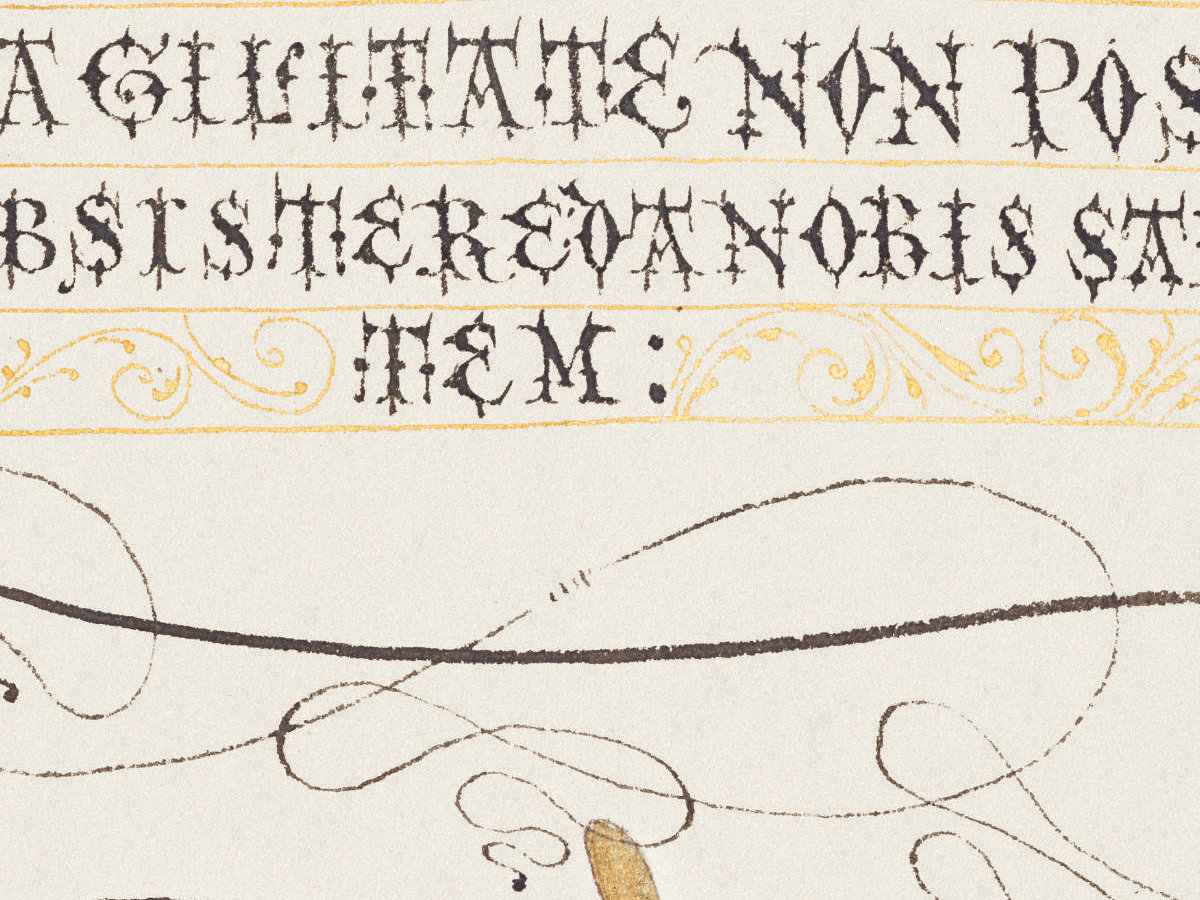 AGILITATE NON POS
BSISTERE DA NOBIS SA
TEM :